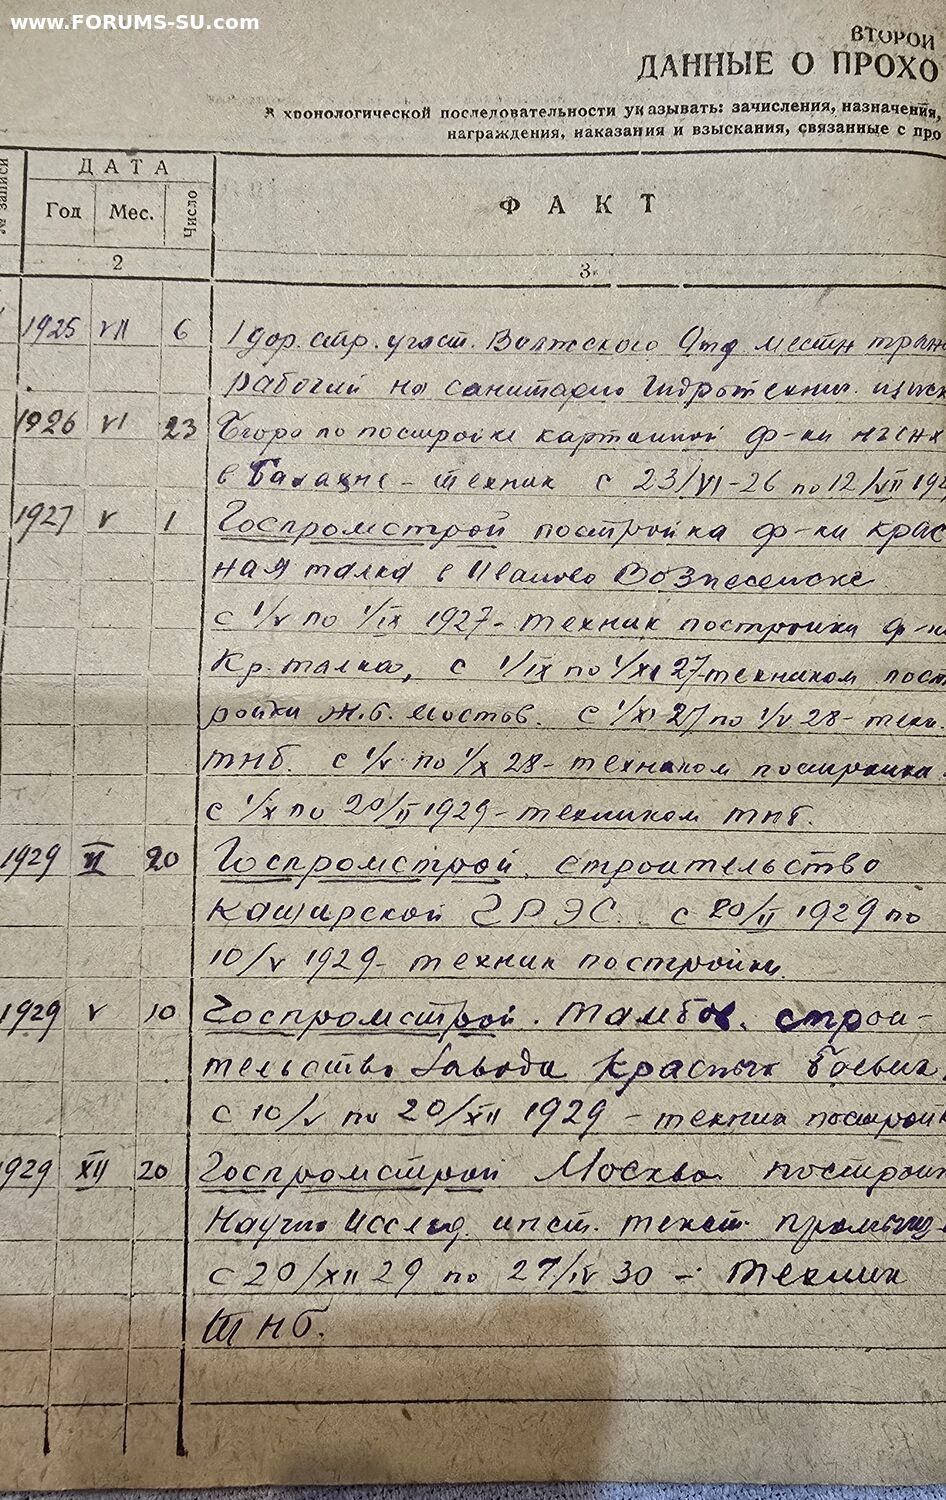 www.FORUMS-SU.com
ВТОРОЙ
ДАННЫЕ О ПРОХО
В хронологической последовательности указывать: зачисления, назначения,
награждения, наказания и взыскания, связанные с про
№ записи
ДАТА
Год Мес. Число
ФАКТ
2 3
1925 VII 6 1 дор. стр. участ. Волжского Отд местн тран
Рабочий на санитарно Гидротехнич. изыск
1926 VI 23 по постройке картонной ф-ки
в Балахне - техник с 23/VI-26 по 12/VII 192
1927 V 1 Госпромстрой постройка ф-ки крас
ная талка в Иваново Вознесенске
с 1/V по 1/IX 1927- техник постройки ф-к
Кр. талка, с 1/IX по 1/XI 27-техником пост
ройки ж.б. мостов. с 1/XI 27 по 1/V 28- техн.
ТНБ. с 1/V по 1/X 28- техником постройки
с 1/X по 20/II 1929- техником ТНБ.
1929 II 20 Госпромстрой. строительство
Каширской ГРЭС. с 20/II 1929 по
10/V 1929- техник постройки.
1929 V 10 Госпромстрой. Тамбов. строи-
тельство Завода Красный боевик
с 10/V по 20/XII 1929 - техник постройк
1929 XII 20 Госпромстрой Москва построй
Научно Исслед. инст. текст. промышл.
с 20/XII 29 по 27/IV 30 - Техник
ТНБ.